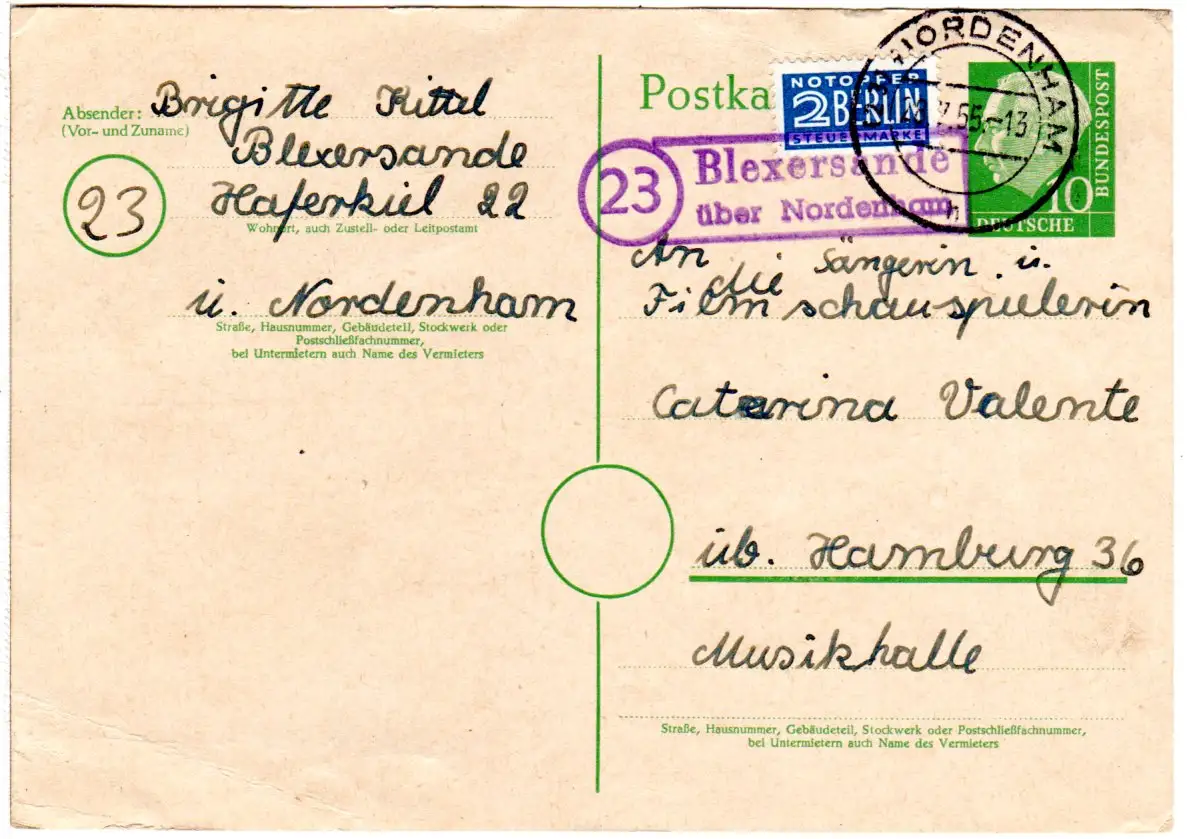 Absender: Brigitte Kittel
(Vor- und Zuname)
Blexersande
23
Haferkiel 22
Wohnort, auch Zustell- oder Leitpostamt
ü. Nordenham
Straße, Hausnummer, Gebäudeteil, Stockwerk oder
Postschließfachnummer,
bei Untermietern auch Name des Vermieters
Postka
NOTOPFER
2 BERLIN
STEUERMARKE
NORDENHAM
55.-13
h
10
DEUTSCHE
BUNDESPOST
23
Blexersande
über Nordenham
An die Sängerin u.
Filmschauspielerin
Catarina Valente
üb. Hamburg 36
Musikhalle
Straße, Hausnummer, Gebäudeteil, Stockwerk oder Postschließfachnummer,
bei Untermietern auch Name des Vermieters